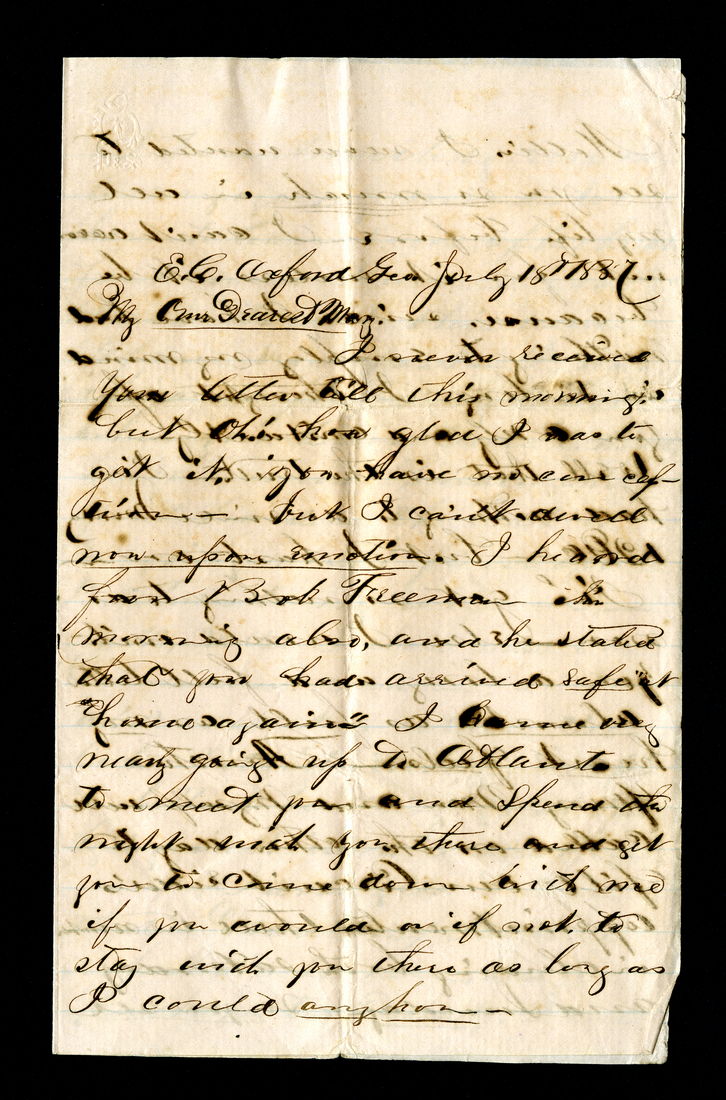 E.C. Oxford Geo July 18th 1887
My Own Dearest May:
I never received
Your letter till this morning:
but Oh! how glad I was to
git it, you have no con cep-
tion — but I can't dwell
now upon emotion. I heard
from Bob Freeman this
morning also, and he stated
that you had arrived safe at
"home again" I came very
nearly going up to Atlanta
to meet you and spend the
night with you there and get
you to come down with me
if you would or if not, to
stay with you there as long as
I could anyhow —